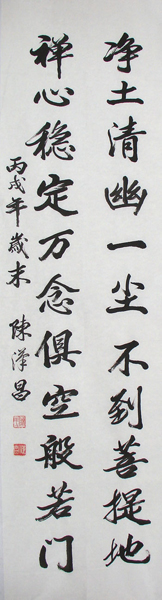 净土清幽一尘不到菩提地
禅心稳定万念俱空般若门
丙戌年岁末
陳漢昌